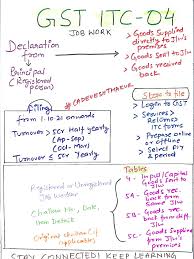 GST ITC-04
JOB WORK
Declaration
from
Principal
(Registered person)
→ Goods Supplied
directly from JW's
premises
→ Goods sent to JW
→ Goods received
back
#CADEVESHTHAKUR
filing
from 1-10-2021 onwards
Turnover > 5cr Half yearly
(Apr-Sep)
(Oct-Mar)
Turnover ≤ 5cr Yearly
Steps to file
→ Login to GST
→ Services >
Returns >
ITC forms
→ Prepare online
or offline
→ Submit
Registered or Unregistered
Job Worker
Challan No., Date,
Item Details
Original challan (if
applicable)
Tables
4 - Input/Capital
Goods sent to
JW
5A - Goods rec.
back from same
JW
5B - Goods rec.
back from diff.
JW
5C - Goods Supplied
directly from JW's
premises
STAY CONNECTED | KEEP LEARNING